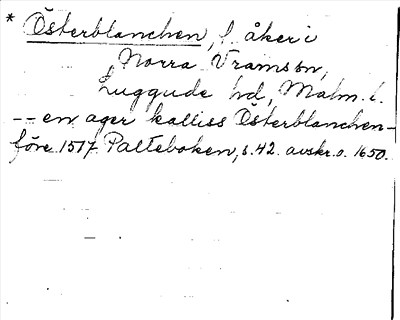 * Österblanchen, f. åker i
Norra Vram sn,
Luggude hd, Malm. l.
-- en ager kalliss Österblanchen -
före 1517 Palteboken, s. 42. avskr. o. 1650.